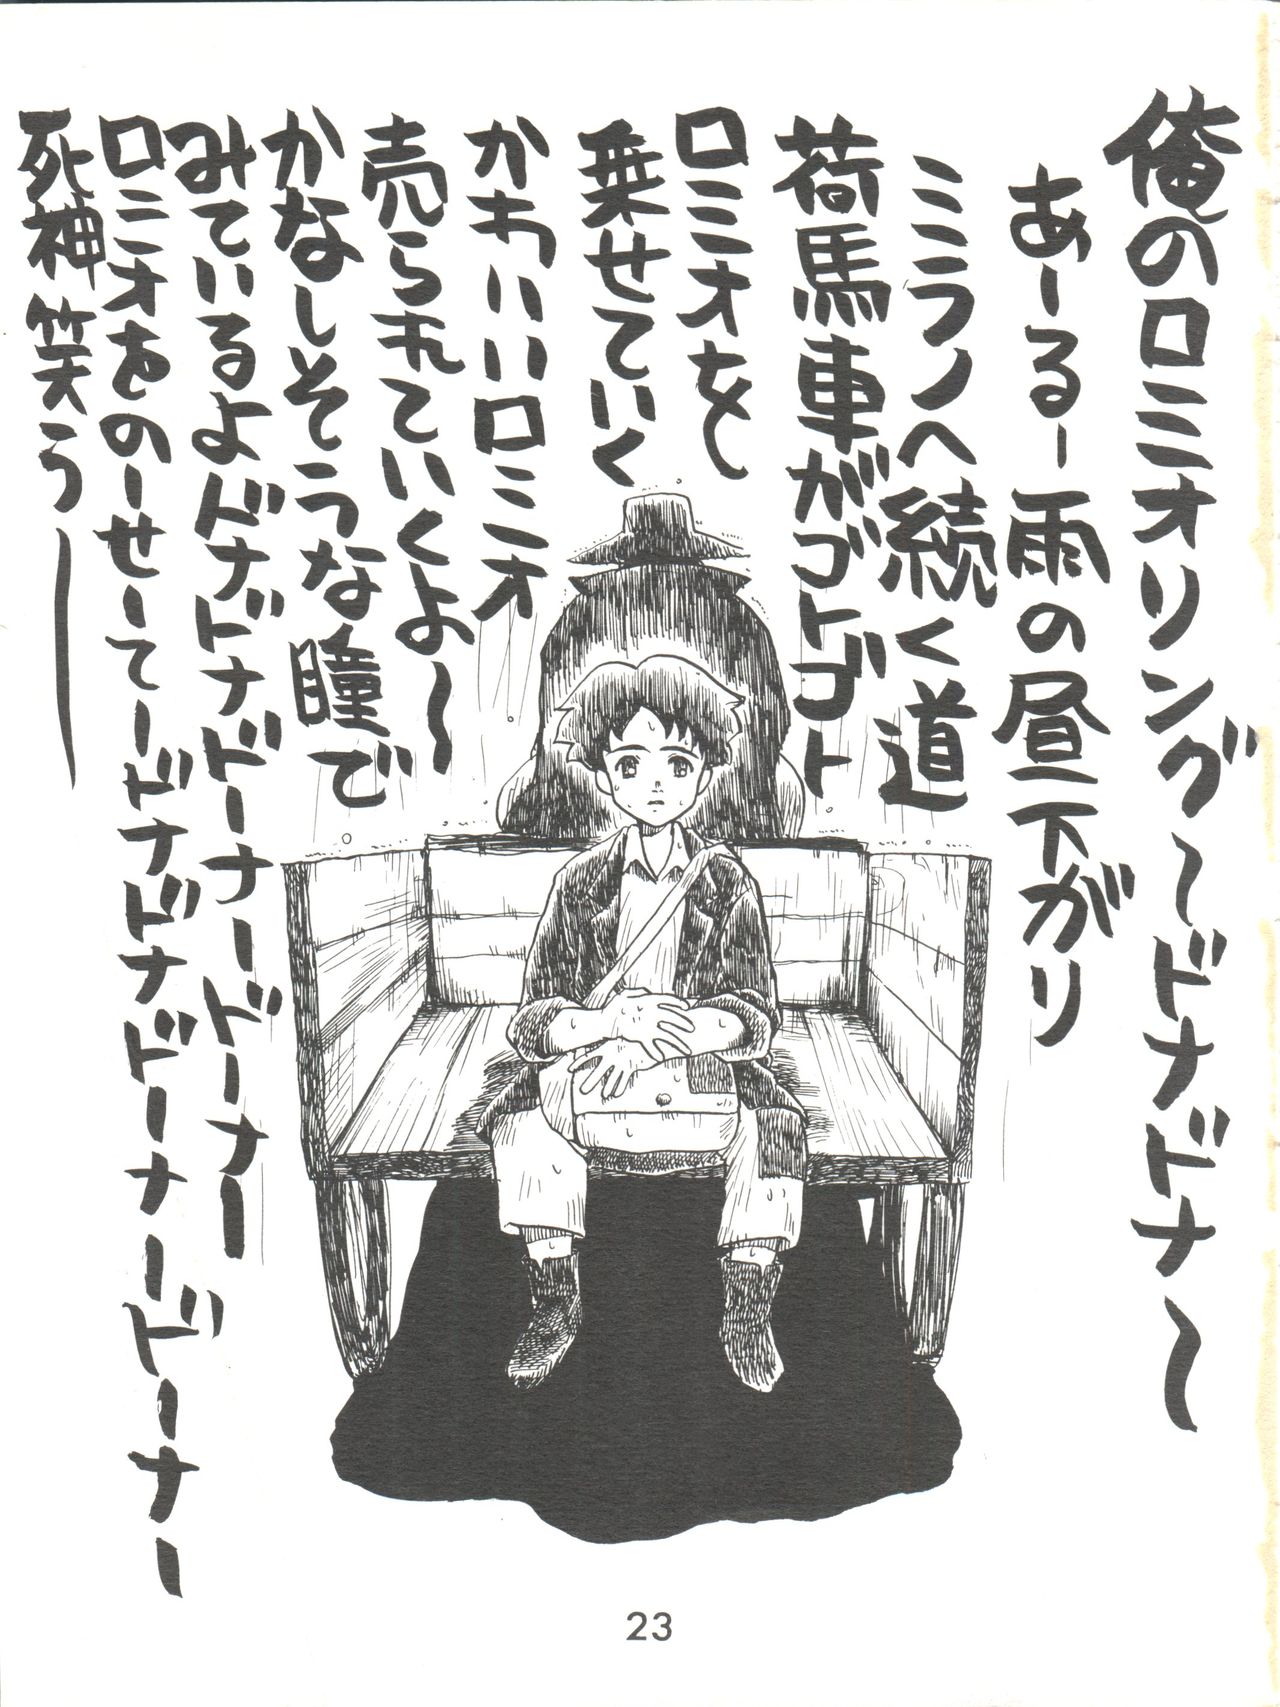 俺のロミオリング〜ドナドナ〜
あーるー雨の昼下がり
ミラノへ続く道
荷馬車がゴトゴト
ロミオを
乗せていく
かわいいロミオ
売られていくよ〜
かなしそうな瞳で
みているよドナドナドーナードーナー
ロミオをのーせーてードナドナドーナードーナー
死神笑う〜
23